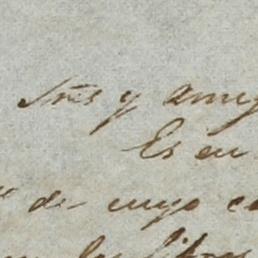 Sres y amig
Es en
de cuyo ca
los libros